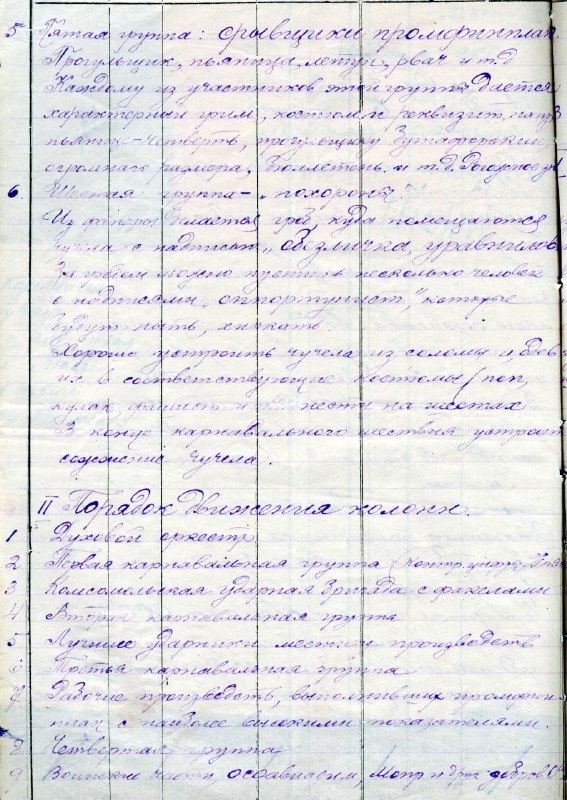 5 Пятая группа: срывщики промфинплан.
Прогульщик, пьяница, летун, рвач и т.д
Каждому из участников этой группы дается
характерный грим, костюм и реквизит, напр
пьянице-четверть, прогульщику бутафорский
огромного размера, бюллетень. и т.д.
6. Шестая группа- "похороны".
Из фанеры делается гроб, куда помещаются
чучела с надписью "обезличка, уравнилов
За гробом можно пустить несколько человек
с надписями "оппортунист," которые
будут ныть, хныкать.
Хорошо устроить чучела из соломы и, одев
их в соответствующие костюмы (поп,
кулак, фашист и т.д. нести на шестах
В конце карнавального шествия устроит
сожжение чучела.
II Порядок движения колонн.
1 Духовой оркестр
2 Первая карнавальная группа
3 Комсомольская ударная бригада с факелами
4 Вторая карнавальная группа
5 Лучшие ударники местных производств
6 Третья карнавальная группа
7 Рабочие производств, выполнивших промфин
план с наиболее высокими показателями.
8 Четвертая группа
9 Воинские части, осоавиахим, Мопр и друг. добров.